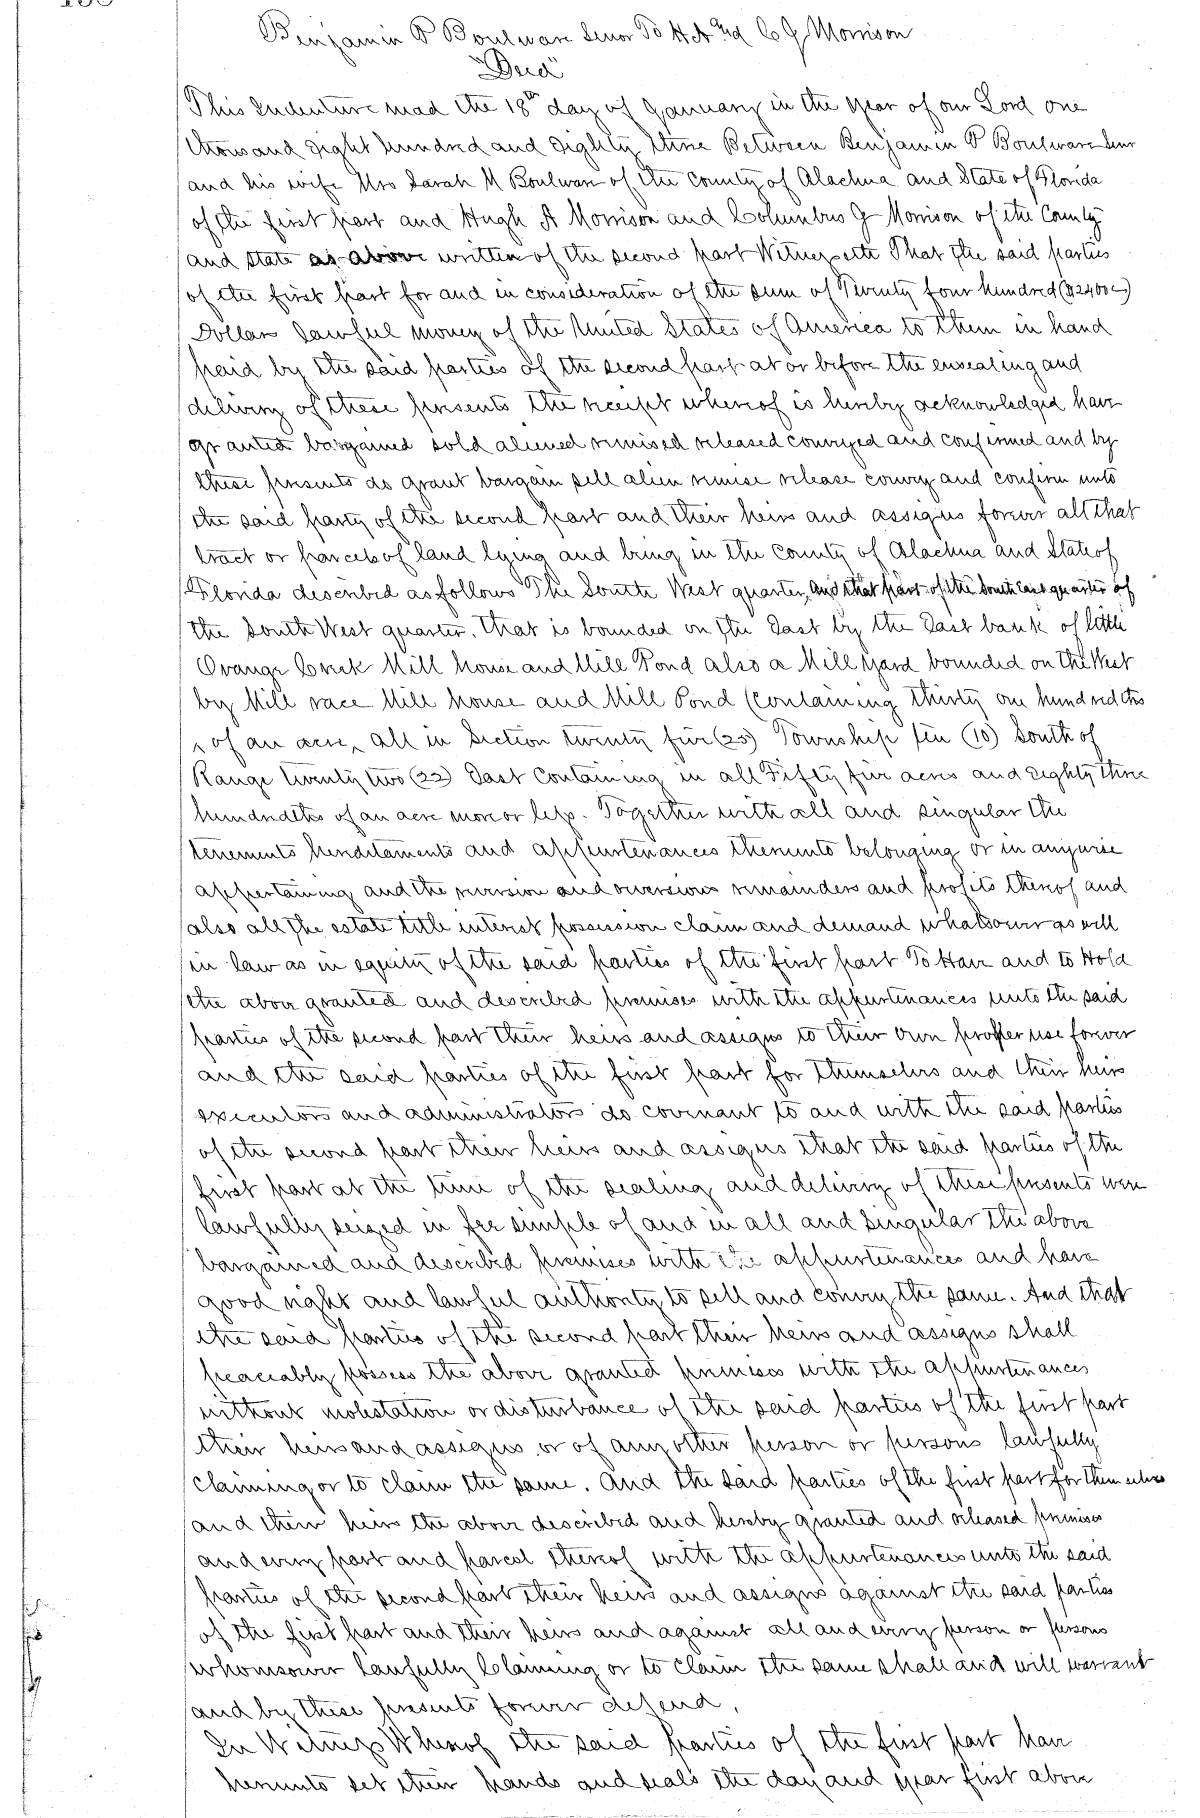 Benjamin P Boulware Senor To H A and C G Morrison
"Deed"
This Indenture mad the 18th day of January in the year of our Lord one
thousand Eight hundred and Eighty three Between Benjamin P Boulware Senr
and his wife Mrs Sarah M Boulware of the County of Alachua and State of Florida
of the first part and Hugh A Morrison and Columbus G Morrison of the County
and state as above written of the second part Witnesseth That the said parties
of the first part for and in consideration of the sum of Twenty four hundred ($2400 00)
Dollars lawful money of the United States of America to them in hand
paid by the said parties of the second part at or before the ensealing and
delivery of these presents the receipt whereof is hereby acknowledged have
granted bargained sold aliened remised released conveyed and confirmed and by
these presents do grant bargain sell alien remise release convey and confirm unto
the said party of the second part and their heirs and assigns forever all that
tract or parcels of land lying and being in the County of Alachua and State of
Florida described as follows The South West quarter, and that part of the South East quarter of
the South West quarter. that is bounded on the East by the East bank of little
Orange Creek Mill house and Mill Pond also a Mill yard bounded on the West
by Mill race Mill house and Mill Pond (containing thirty one hundredths
of an acre, all in Section twenty five (25) Township ten (10) South of
Range twenty two (22) East Containing in all Fifty five acres and Eighty three
hundredths of an acre more or less. Together with all and singular the
tenements hereditaments and appurtenances thereunto belonging or in anywise
appertaining and the reversion and reversions remainders and profits thereof and
also all the estate title interest possession claim and demand whatsoever as well
in law as in equity of the said parties of the first part To Have and to Hold
the above granted and described premises with the appurtenances unto the said
parties of the second part their heirs and assigns to their own proper use forever
and the said parties of the first part for themselves and their heirs
executors and administrators do covenant to and with the said parties
of the second part their heirs and assigns that the said parties of the
first part at the time of the sealing and delivery of these presents were
lawfully seized in fee simple of and in all and singular the above
bargained and described premises with the appurtenances and have
good right and lawful authority to sell and convey the same. And that
the said parties of the second part their heirs and assigns shall
peaceably possess the above granted premises with the appurtenances
without molestation or disturbance of the said parties of the first part
their heirs and assigns or of any other person or persons lawfully
claiming or to claim the same. And the said parties of the first part for themselves
and their heirs the above described and hereby granted and released premises
and every part and parcel thereof with the appurtenances unto the said
parties of the second part their heirs and assigns against the said parties
of the first part and their heirs and against all and every person or persons
whomsoever lawfully Claiming or to claim the same shall and will warrant
and by these presents forever defend.
In Witness Whereof the said parties of the first part have
hereunto set their hands and seals the day and year first above